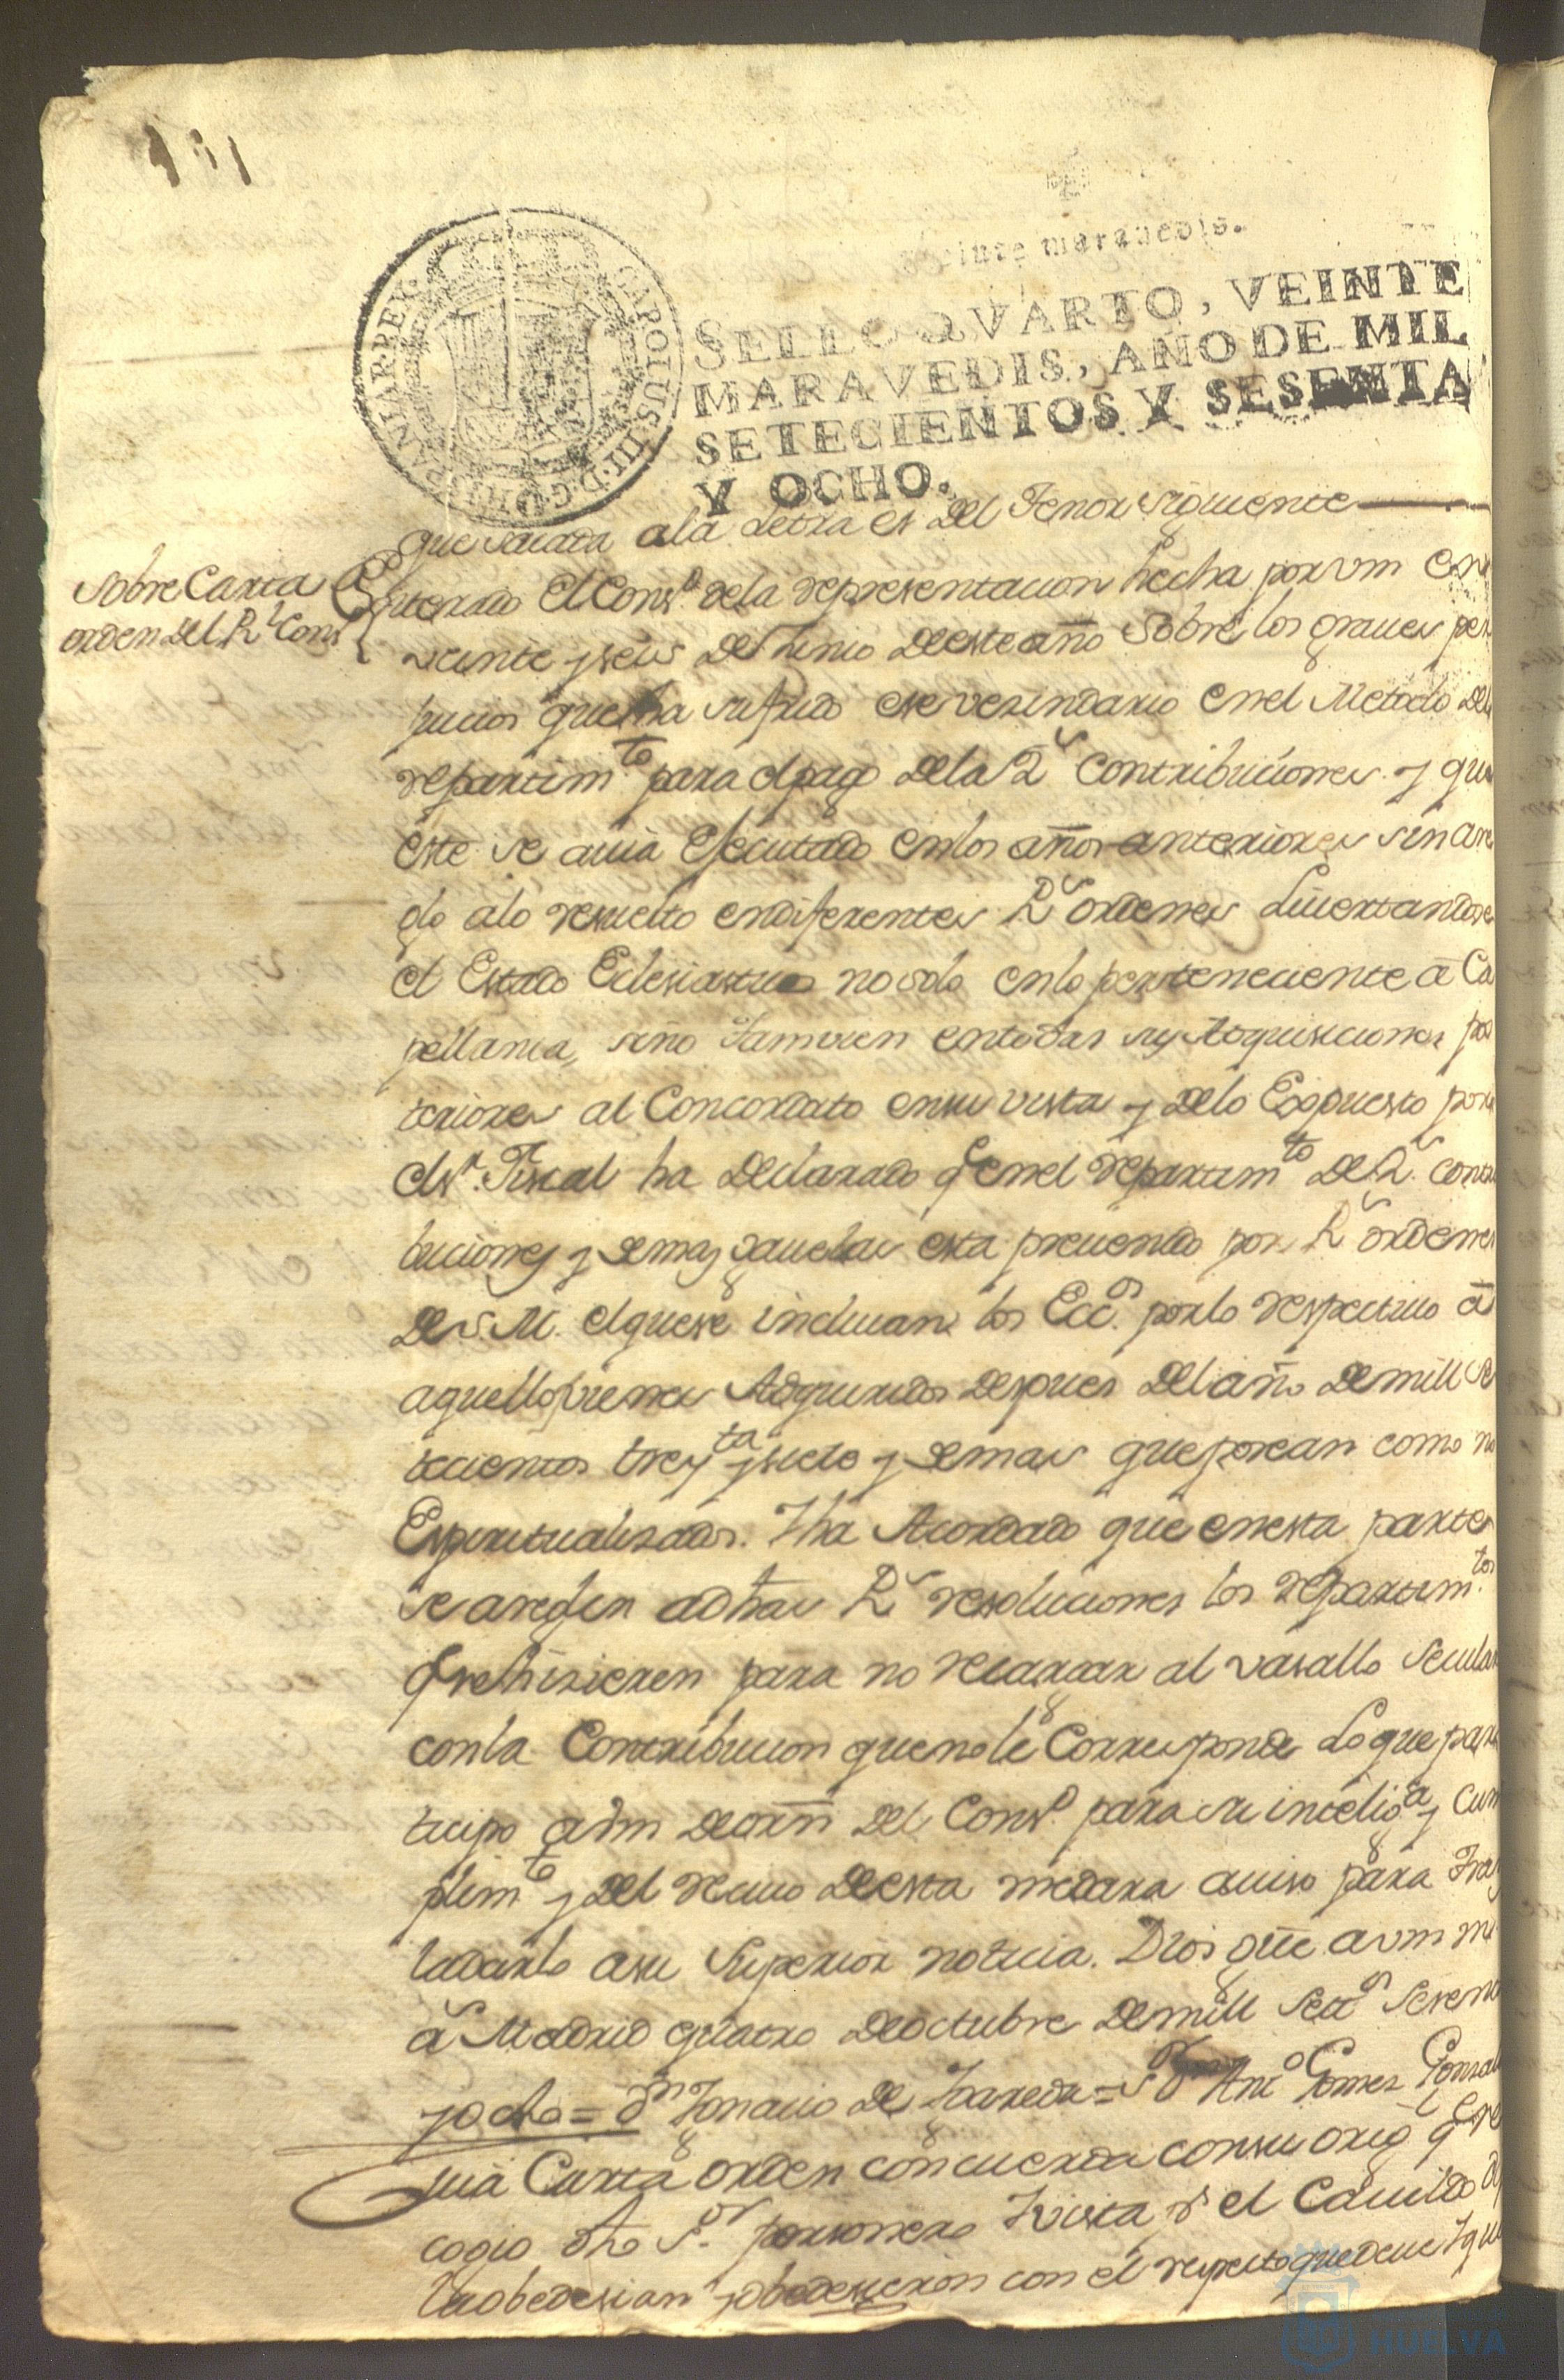 veinte maravedis.
SELLO QVARTO, VEINTE
MARAVEDIS, AÑO DE MIL
SETECIENTOS Y SESENTA
Y OCHO.
CAROLUS III D G HISPANIAR REX
que sacada ala Letra es del Tenor siguiente
Sobre Carta
orden del Rl Consº
Enterado el Consº dela representacion hecha por vm en
veinte y seis de Junio deeste año sobre los graues per
juicios que ha sufrido ese vesindario enel Metodo del
repartimto para el pago delas Rs Contribuciones y que
este se auia ejecutado enlos años anteriores sin arre
glo alo resuelto endiferentes Rs ordenes Liuertandose
el Estado Eclesiastico no solo enlo perteneciente â Ca
pellania, sino tamvien entodas sus Adquisiciones pos
teriores al Concordato ensu vista y delo Expuesto por
el sr. Fiscal ha declarado qe enel repartimto de Rs contri
buciones y demas gauelas esta preuenido por Rs ordenes
de S. M. el que se incluian los Eccos por lo respectiuo â
aquellos vienes Adquiridos despues del año demill se
tecientos treyta y siete y demas que posean como no
Espiritualisados. Y ha Acordado que enesta parte
se areglen adhas Rs resoluciones los repartimtos
q se hisieren para no recargar al vasallo secular
conla Contribucion que no le Corresponde Lo que par
ticipo avm deorn del Consº para su inteliga y cum
plimto y del reciuo deesta medara auiso para tras
ladarlo asu Superior noticia. Dios gue avm ms
as Madrid quatro deoctubre demill Setos Sesenta
yocho = Dn Ignacio de Ygareda = Sor Dn Anto Gomez Gonsal
Cuia Carta orden concuerda consu orig qe re
cogio dho Sor personero Yvista pr el Cauildo
la obedesian y obedesieron con el respecto que deue Y que
HUELVA